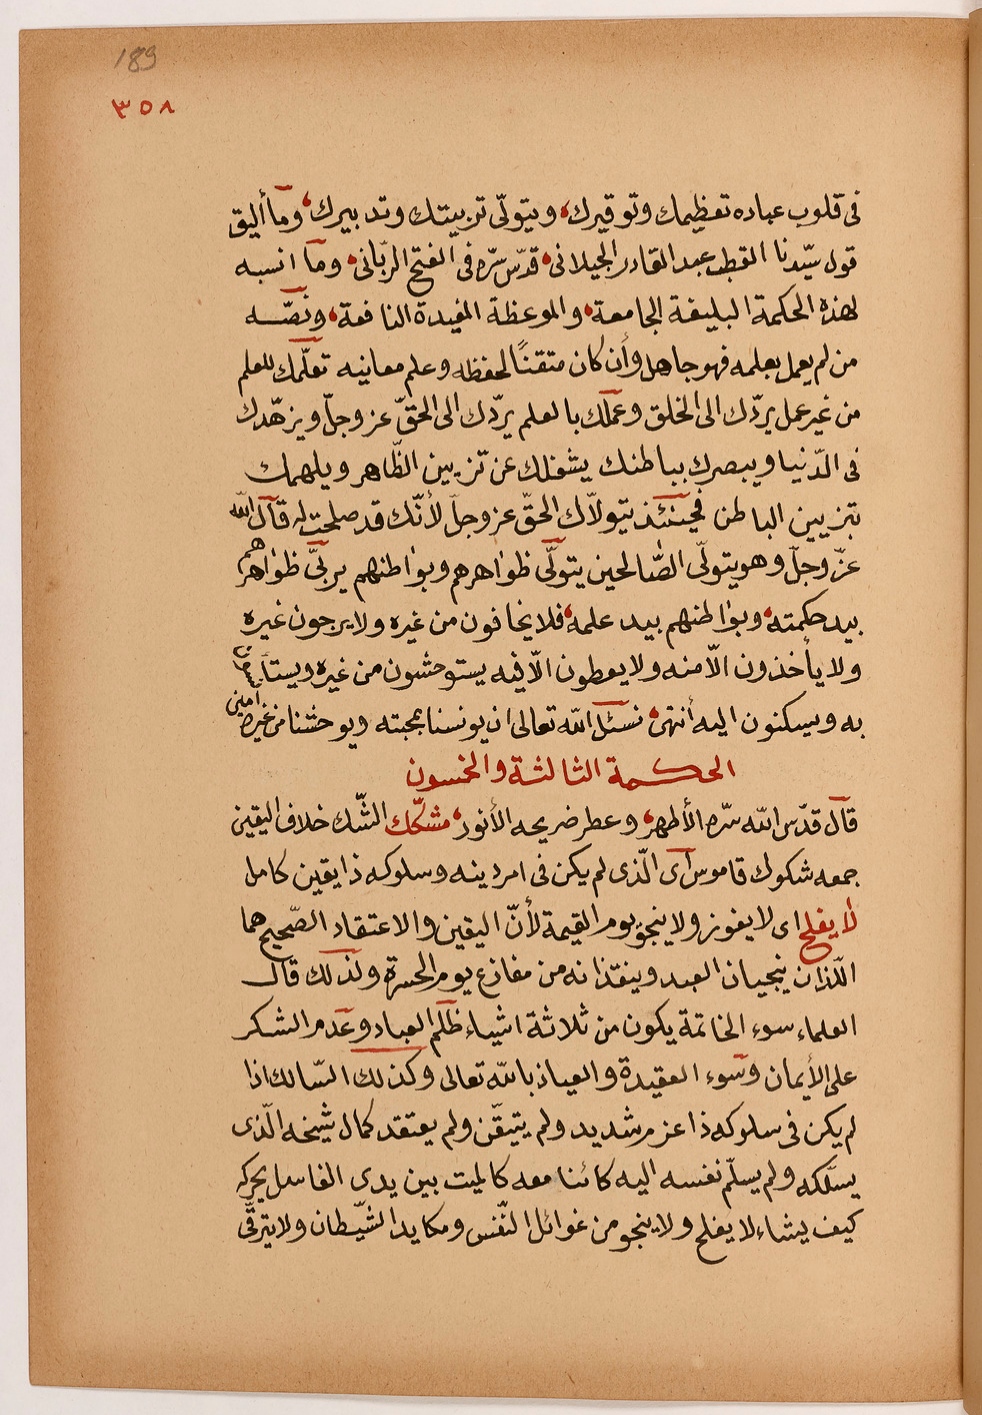 189
٣٥٨
فى قلوب عباده تعظيمك وتوقيرك، ويتولّى تربيتك وتدبيرك، وما أليق
قول سيّدنا القطب عبد القادر الجيلانى، قدّس سرّه فى الفتح الربّانى، وما انسبه
لهذه الحكمة البليغة الجامعة، والموعظة المفيدة النافعة، ونصّه
من لم يعمل بعلمه فهو جاهل وأن كان متقنًا لحفظه وعلم معانيه تعلّمك للعلم
من غير عمل يردّك الى الخلق وعملك بالعلم يردّك الى الحقّ عز وجلّ ويزهّدك
فى الدّنيا ويبصرك بباطنك يشغلك عن تزيين الظّاهر ويلهمك
بتزيين الباطن فحينئذ يتولاّك الحقّ عز وجلّ لأنّك قد صلحت له قال الله
عزّ وجلّ وهو يتولّى الصّالحين يتولّى ظواهرهم وبواطنهم يربّى ظواهرهم
بيد حكمته، وبواطنهم بيد علمه، فلا يخافون من غيره ولا يرجون غيره
ولا يأخذون الاّ منه ولا يعطون الاّ فيه يستوحشون من غيره ويستأنسون
به ويسكنون اليه أنتهى، نسئل الله تعالى ان يونسنا بمحبته ويوحشنا من غيره امين
الحكمة الثالثة والخمسون
قال قدّس الله سرّه الأطهر، وعطر ضريحه الأنور، مشكّك الشّك خلاف اليقين
جمعه شكوك قاموس أى الّذى لم يكن فى امر دينه وسلوكه ذا يقين كامل
لا يفلح اى لا يفوز ولا ينجو يوم القيمة لأنّ اليقين والاعتقاد الصّحيح هما
اللّذان ينجيان العبد وينقذانه من مفازع يوم الحسرة ولذلك قال
العلماء سوء الخاتمة يكون من ثلاثة اشياء ظلم العباد وعدم الشكر
على الأيمان وسوء العقيدة والعياذ بالله تعالى وكذلك السّالك اذا
لم يكن فى سلوكه ذا عزم شديد ولم يتيقّن ولم يعتقد كمال شيخه الّذى
يسلّكه ولم يسلّم نفسه اليه كائنا معه كالميت بين يدى الغاسل يحركه
كيف يشاء لا يفلح ولا ينجو من غوائل النّفس ومكايد الشّيطان ولا يترقّى